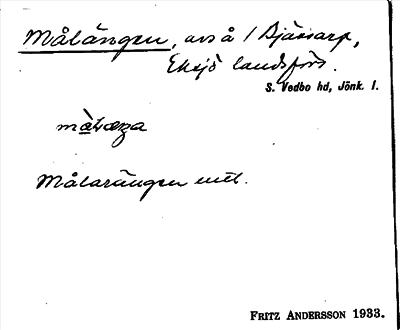 Målängen, avs å 1 Bjäsarp,
Eksjö landsförs.
S. Vedbo hd, Jönk. l.
Målarängen utt.
FRITZ ANDERSSON 1933.